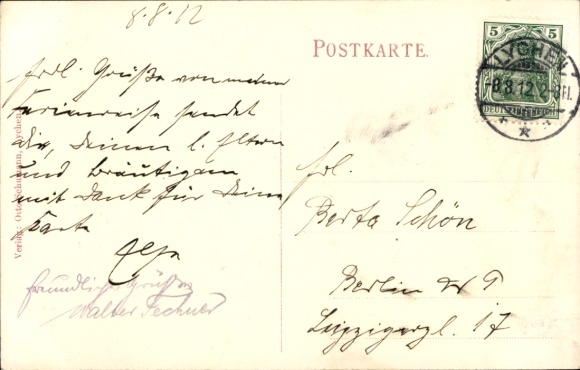 8.8.12
POSTKARTE.
5 5
LYCHEN
8.8.12.2-3N.
DEUTSCHES REICH
frdl. Grüße von meiner
Ferienreise sendet
dir, deinen l. Eltern
und Bräutigam
mit Dank für deine
Karte
Elsa
freundliche Grüße
Walter Fechner
Frl.
Berta Schön
Berlin
Leipzigerpl. 17
Verlag: Otto Schumann, Lychen